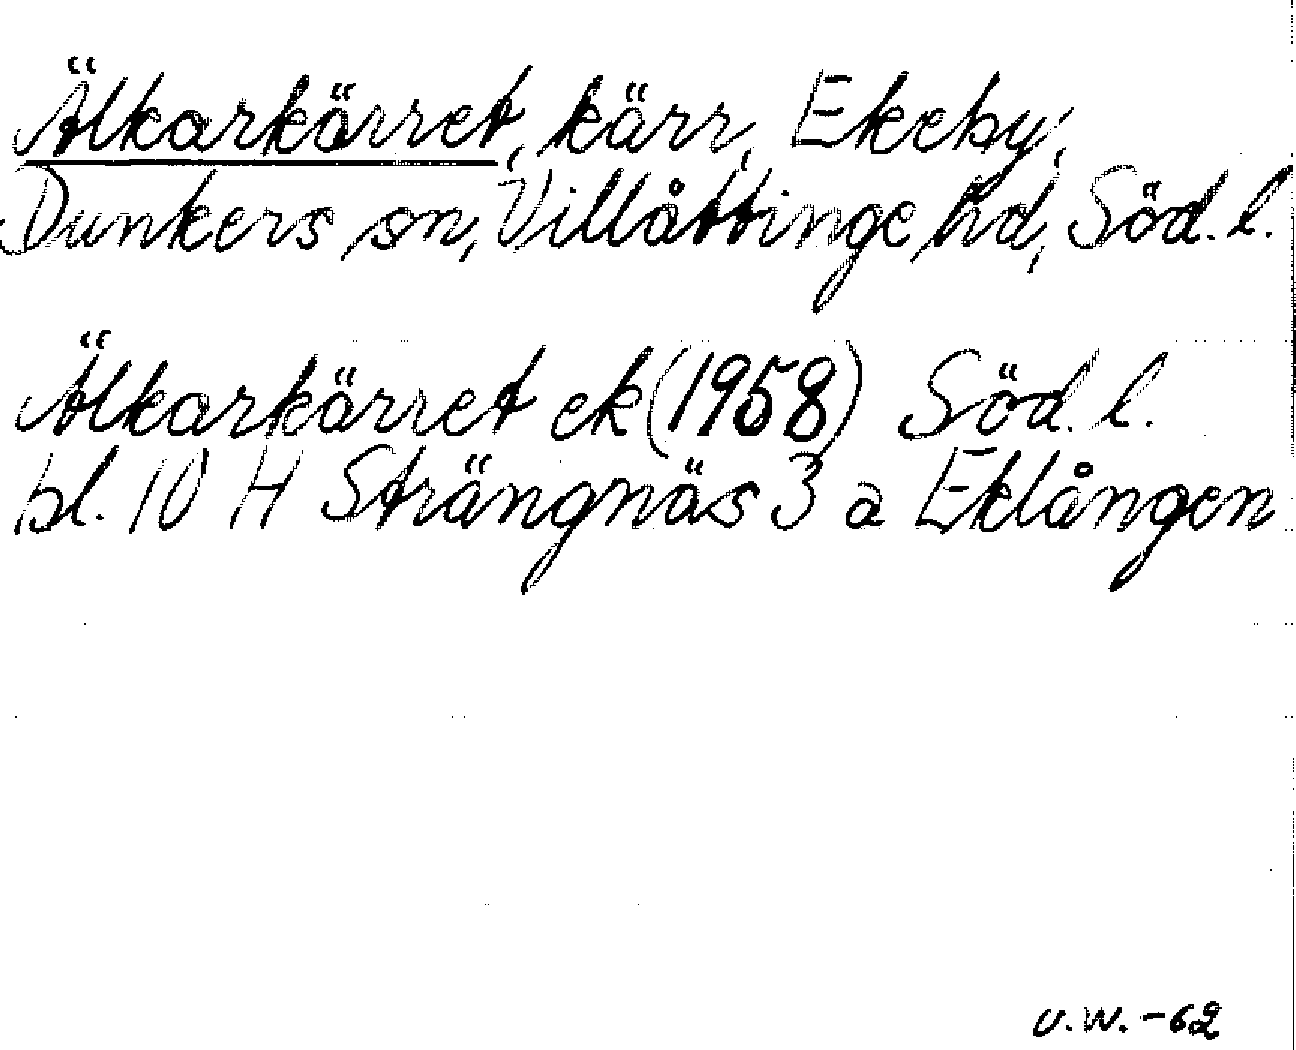 Älkarkärret, kärr, Ekeby,
Dunkers sn, Villåttinge hd, Söd. l.
Älkarkärret ek (1958) Söd. l.
bl. 10 H Strängnäs 3 a Eklången
U.W. -62